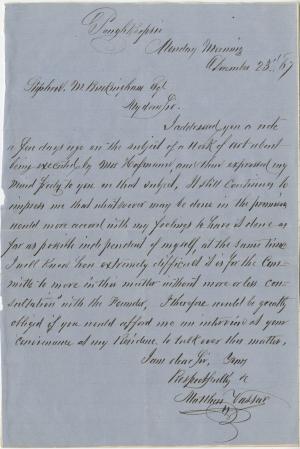 Poughkeepsie
Monday Morning
December 23d /67
Stephen M. Buckingham Esqr
My dear Sir.
I addressed you a note
a few days ago on the subject of a Work of art about
being executed by Miss Hofmann and there expressed my
mind freely to you on that subject, It still continues to
impress me that whatsoever may be done in the premises
would more accord with my feelings to have it done as
far as possible independent of myself, at the same time
I well know how extremely difficult it is for the Com-
mittee to move in this matter without more or less con-
sultation with the Founder, I therefore would be greatly
obliged if you would afford me an interview at your
convenience at my Residence to talk over this matter,
I am dear Sir, Yours
Respectfully &c
Matthew Vassar